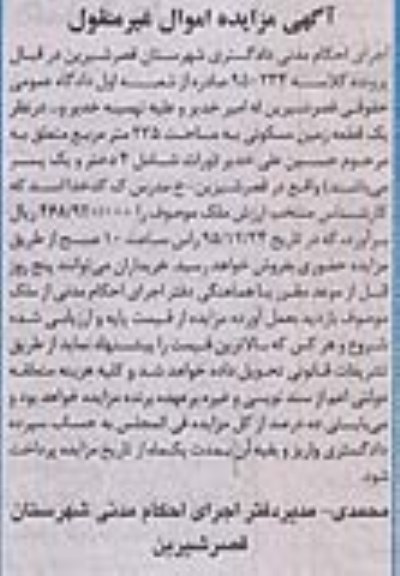 آگهی مزایده اموال غیرمنقول
اجرای احکام مدنی دادگستری شهرستان قصرشیرین در قبال
پرونده کلاسه ۹۵۰۲۳۴ صادره از شعبه اول دادگاه عمومی
حقوقی قصرشیرین له امیر خدیر و علیه تهمینه خدیر و... درنظر
یک قطعه زمین مسکونی به مساحت ۲۳۵ متر مربع متعلق به
مرحوم حسین علی خدیر (وراث شامل ۳ دختر و یک پسر
می‌باشند) واقع در قصرشیرین-خ مدرس ک کدخدا است که
کارشناس منتخب ارزش ملک موصوف را ریال
برآورده که در تاریخ ۹۵/۱۲/۲۳ راس ساعت ۱۰ صبح از طریق
مزایده حضوری بفروش خواهد رسید. خریداران می‌توانند پنج روز
قبل از موعد مقرر با هماهنگی دفتر اجرای احکام مدنی از ملک
موصوف بازدید بعمل آورده مزایده از قیمت پایه و ارزیابی شده
شروع و هر کس که بالاترین قیمت را پیشنهاد نماید از طریق
تشریفات قانونی تحویل داده خواهد شد و کلیه هزینه متعلقه
دولتی اعم از سند نویسی و غیره بر عهده برنده مزایده خواهد بود و
می‌بایستی ده درصد از کل مزایده فی المجلس به حساب سپرده
دادگستری واریز و بقیه آن بمدت یکماه از تاریخ مزایده پرداخت
شود.
محمدی- مدیر دفتر اجرای احکام مدنی شهرستان
قصرشیرین